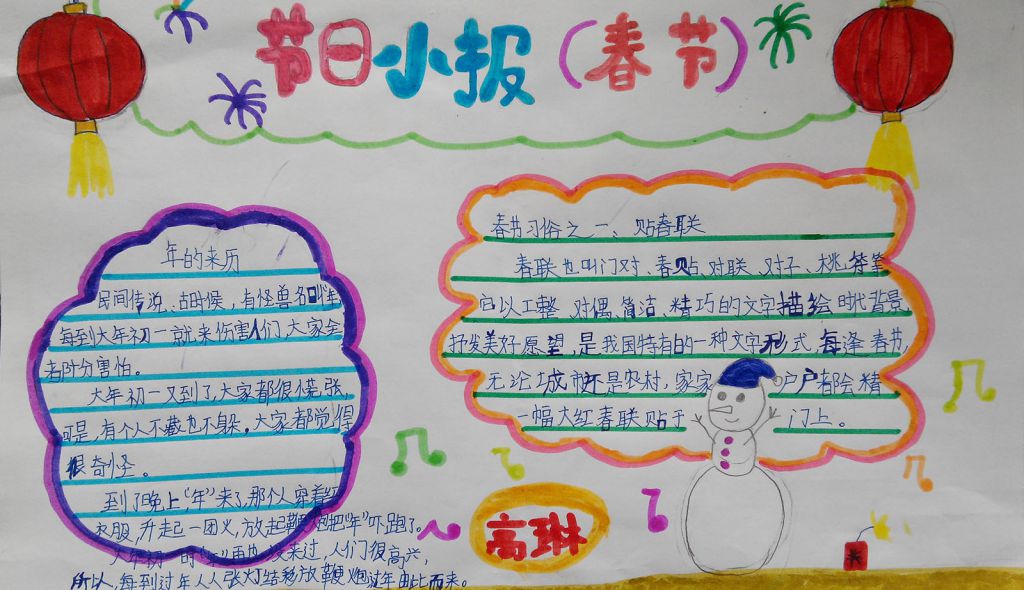 节日小报（春节）
年的来历
民间传说、古时候，有怪兽名叫年
每到大年初一就来伤害人们，大家会
十分害怕。
大年初一又到了，大家都很慌张，
可是，有个人不藏也不躲。大家都觉得
很奇怪。
到了晚上，“年”来了，那个人穿着红
衣服，升起一团火，放起鞭炮把“年”吓跑了。
大年初一的“年”再也没来过，人们很高兴，
所以，每到过年人人张灯结彩放鞭炮过年由此而来。
春节习俗之一、贴春联
春联也叫门对、春贴、对联、对子、桃符等
它以工整、对偶、简洁、精巧的文字描绘时代背景
抒发美好愿望，是我国特有的一种文字形式，每逢春节，
无论城市还是农村，家家户户都会精
一幅大红春联贴于门上。
高琳